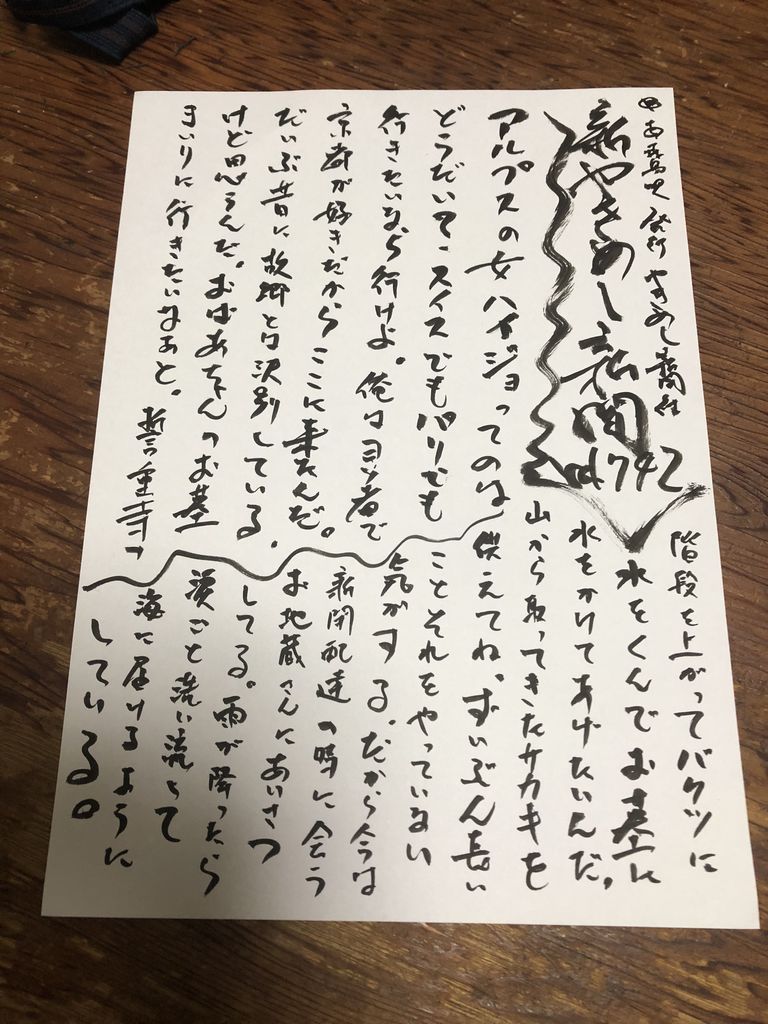 発行 やきめし新聞社
新やきめし新聞
d742
アルプスの女ハイジョってのは
どうだいて、スイスでもパリでも
行きたいなら行けよ。俺はヨソ者で
京都が好きだからここに来たんだ。
だいぶ昔に故郷とは決別している。
けど思うんだ。おばあちゃんのお墓
まいりに行きたいなあと。誓重寺の
階段を上がってバケツに
水をくんでお墓に
水をかけてあげたいんだ。
山から取ってきたサカキを
供えてね。ずいぶん長い
ことそれをやっていない
気がする。だから今は
新聞配達の時に会う
お地蔵さんにあいさつ
してる。雨が降ったら
涙ごと洗い流して
海に届けるように
している。